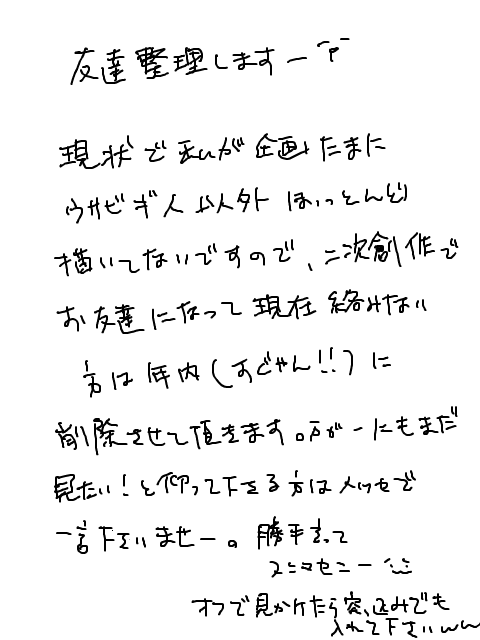 友達整理しますー
現状で私が企画+たまに
ウサビギ人以外ほっとんど
描いてないですので、二次創作で
お友達になって現在絡みない
方は年内(すぐやん!!)に
削除させて頂きます。万が一にもまだ
見たい!と仰って下さる方はメッセで
一言下さいませー。勝手言って
スミマセニー
オフで見かけたら突っ込みでも
入れて下さいww